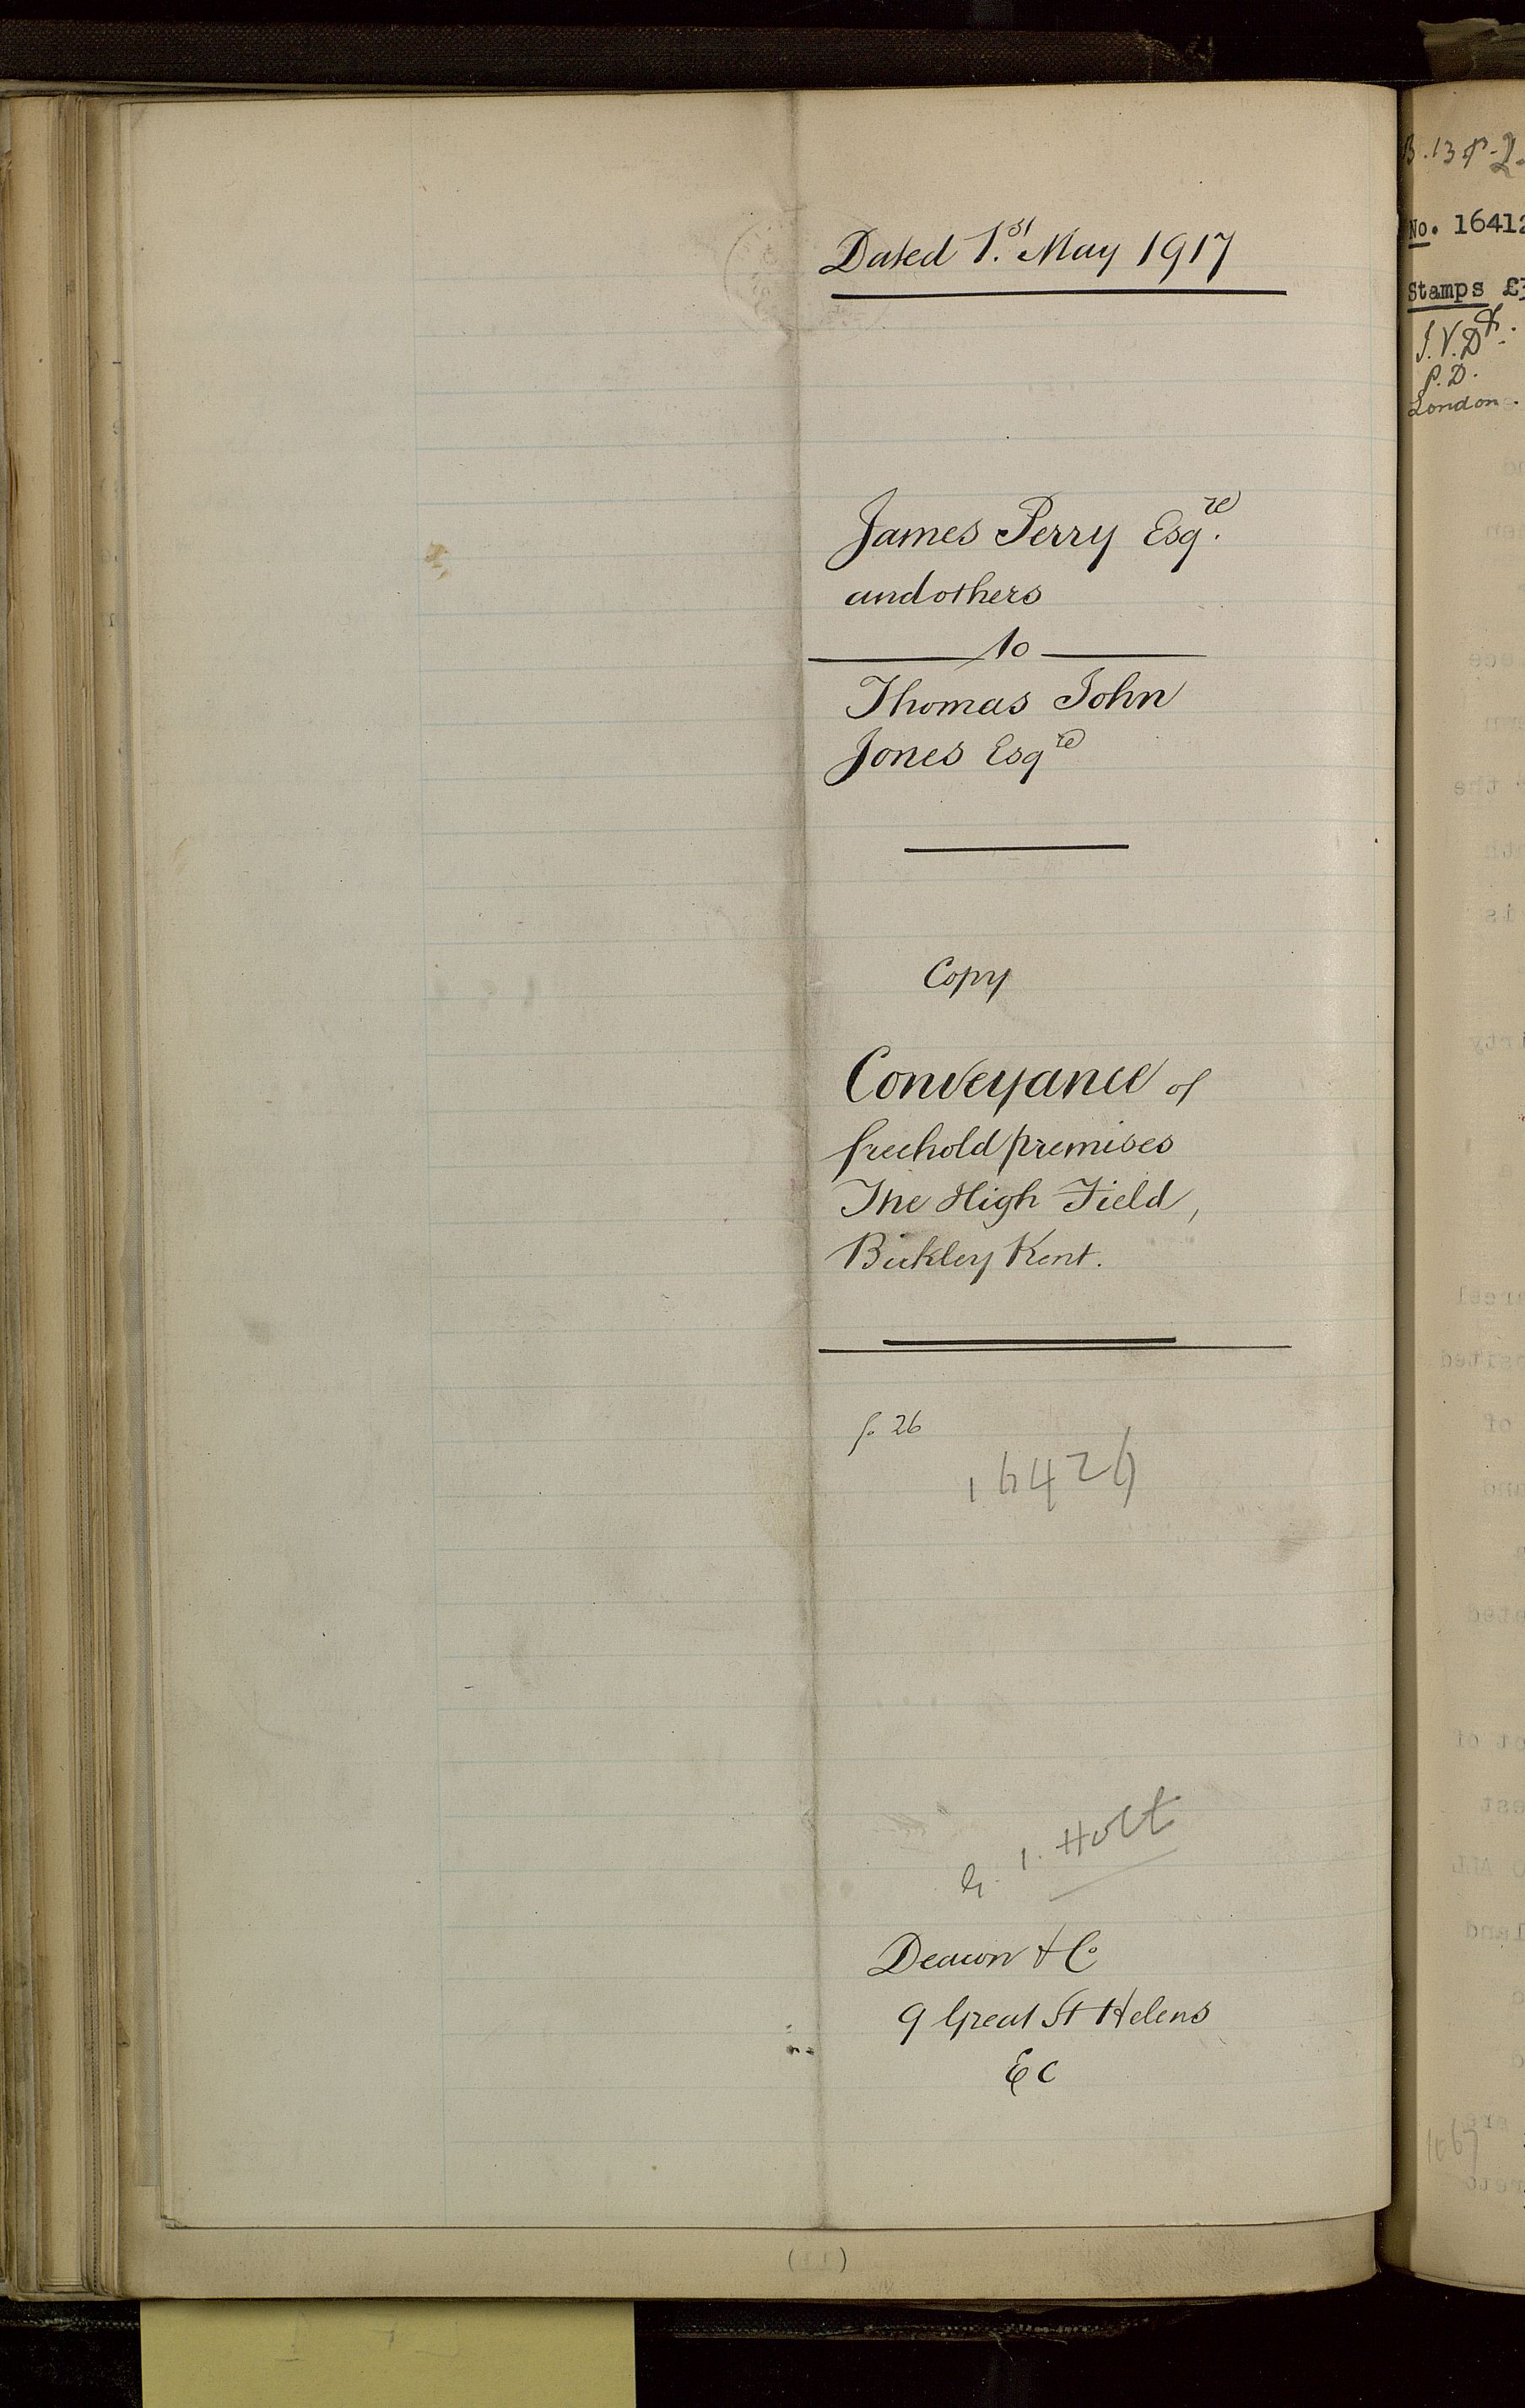 Dated 1.st May 1917
James Perry Esq.re
and others
to
Thomas John
Jones Esqre
Copy
Conveyance of
freehold premises
The High Field,
Bickley Kent.
fo. 26
16426
Holt
Deacon & Co
9 Great St Helens
E C
B.13 P.2.
No. 16412
Stamps £3
I.V.D
P.D.
London.